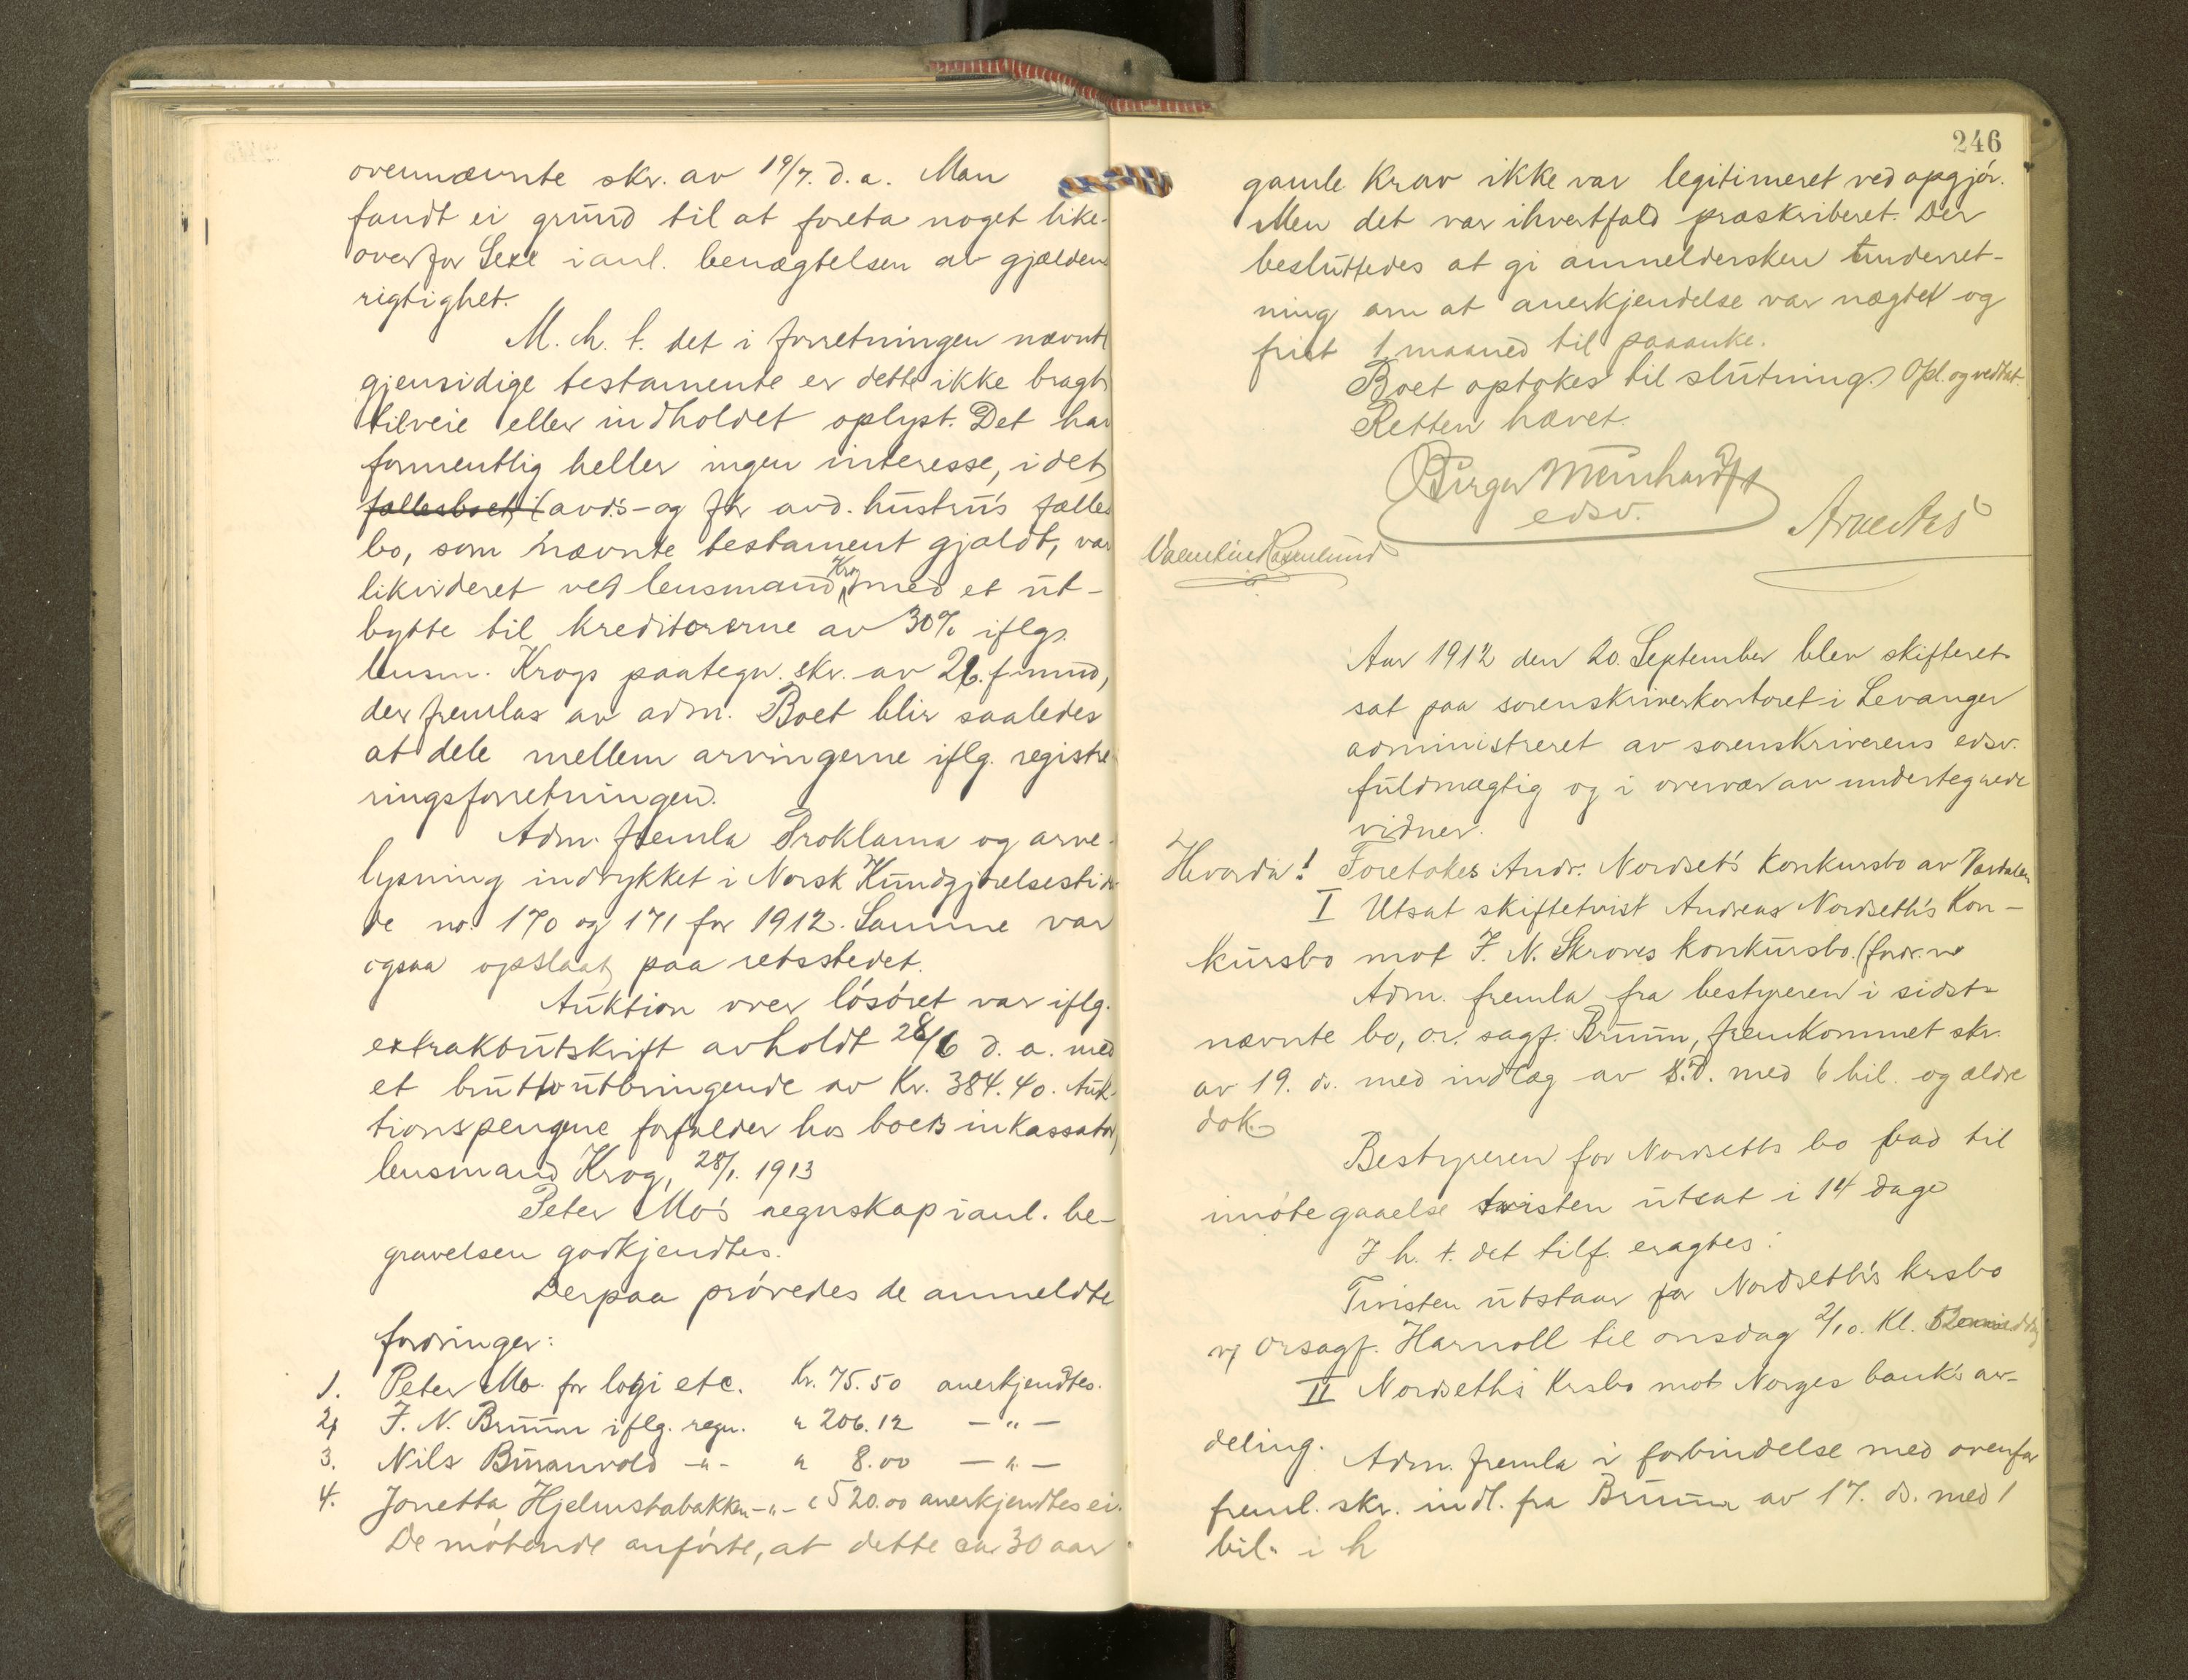 ovennævnte skr. av 19/7. d.a. Man
fandt ei grund til at foreta noget like-
overfor Sexe i anl. benægtelsen av gjældens
rigtighet.
M. h. t. det i forretningen nævnte
gjensidige testamente er dette ikke bragt
tilveie eller indholdet oplyst. Det har
formentlig heller ingen interesse, idet
fællesboet (avd's- og før avd. hustru's fælles
bo, som nævnte testament gjaldt, var
likvideret ved lensmand Krog med et ut-
bytte til kreditorerne av 30% iflg.
lensm. Krogs paategn. skr. av 26. f mnd,
der fremlas av adm. Boet blir saaledes
at dele mellem arvingerne iflg. registre-
ringsforretningen.
Adm. fremla Proklama og arve-
lysning indrykket i Norsk Kundgjørelsestiden-
de no. 170 og 171 for 1912. Samme var
ogsaa opslaat paa retsstedet.
Auktion over løsøret var iflg.
extraktutskrift avholdt 28/6 d. a. med
et bruttoutbringende av Kr. 384.40. Auk-
tionspengene forfalder hos boets inkassator,
lensmand Krog, 28/1. 1913
Peter Mo's regnskap i anl. be-
gravelsen godkjendtes.
Derpaa prøvedes de anmeldte
fordringer:
1. Peter Mo for logi etc. Kr. 75.50 anerkjendtes.
2, J. N. Bruun iflg. regn. " 206.12 — " —
3. Nils Buranvold -"- " 8.00 — " —
4. Jonetta Hjelmstabakken -"- " 520.00 anerkjendtes ei.
De møtende anførte, at dette ca 30 aar
246
gamle Krav ikke var legitimeret ved opgjør.
Men det var ihvertfald præskriberet. Der
besluttedes at gi anmeldersken underret-
ning om at anerkjendelse var nægtet og
frist 1 maaned til paaanke.
Boet optokes til slutning. Opl. og vedtat.
Retten hævet.
Birger Meinhardt
edsv.
Arne Aas
Valentine Rosenlund
Aar 1912 den 20. September blev skifteret
sat paa sorenskriverkontoret i Levanger
administreret av sorenskriverens edsv.
fuldmægtig og i overvær av undertegnede
vidner.
Hvorda! Foretokes Andr. Nordset's Konkursbo av Værdalen
I Utsat skiftetvist Andreas Nordseth's Kon-
kursbo mot J. N. Skroves konkursbo.
Adm. fremla fra bestyreren i sidst-
nævnte bo, o.r. sagf. Bruun, fremkommet skr.
av 19. ds. med indlæg av S.D. med 6 bil. og ældre
dok.
Bestyreren for Nordseths bo bad til
imøtegaaelse tvisten utsat i 14 dage
I h. t. det tilf. eragtes:
Tvisten utstaar for Nordseth's krsbo
v/ orsagf. Harnoll til onsdag 2/10. Kl.
II Nordseth's Krsbo mot Norges bank's av-
deling.
Adm. fremla i forbindelse med ovenfor
freml. skr. indl. fra Bruun av 17. ds. med 1
bil. i h